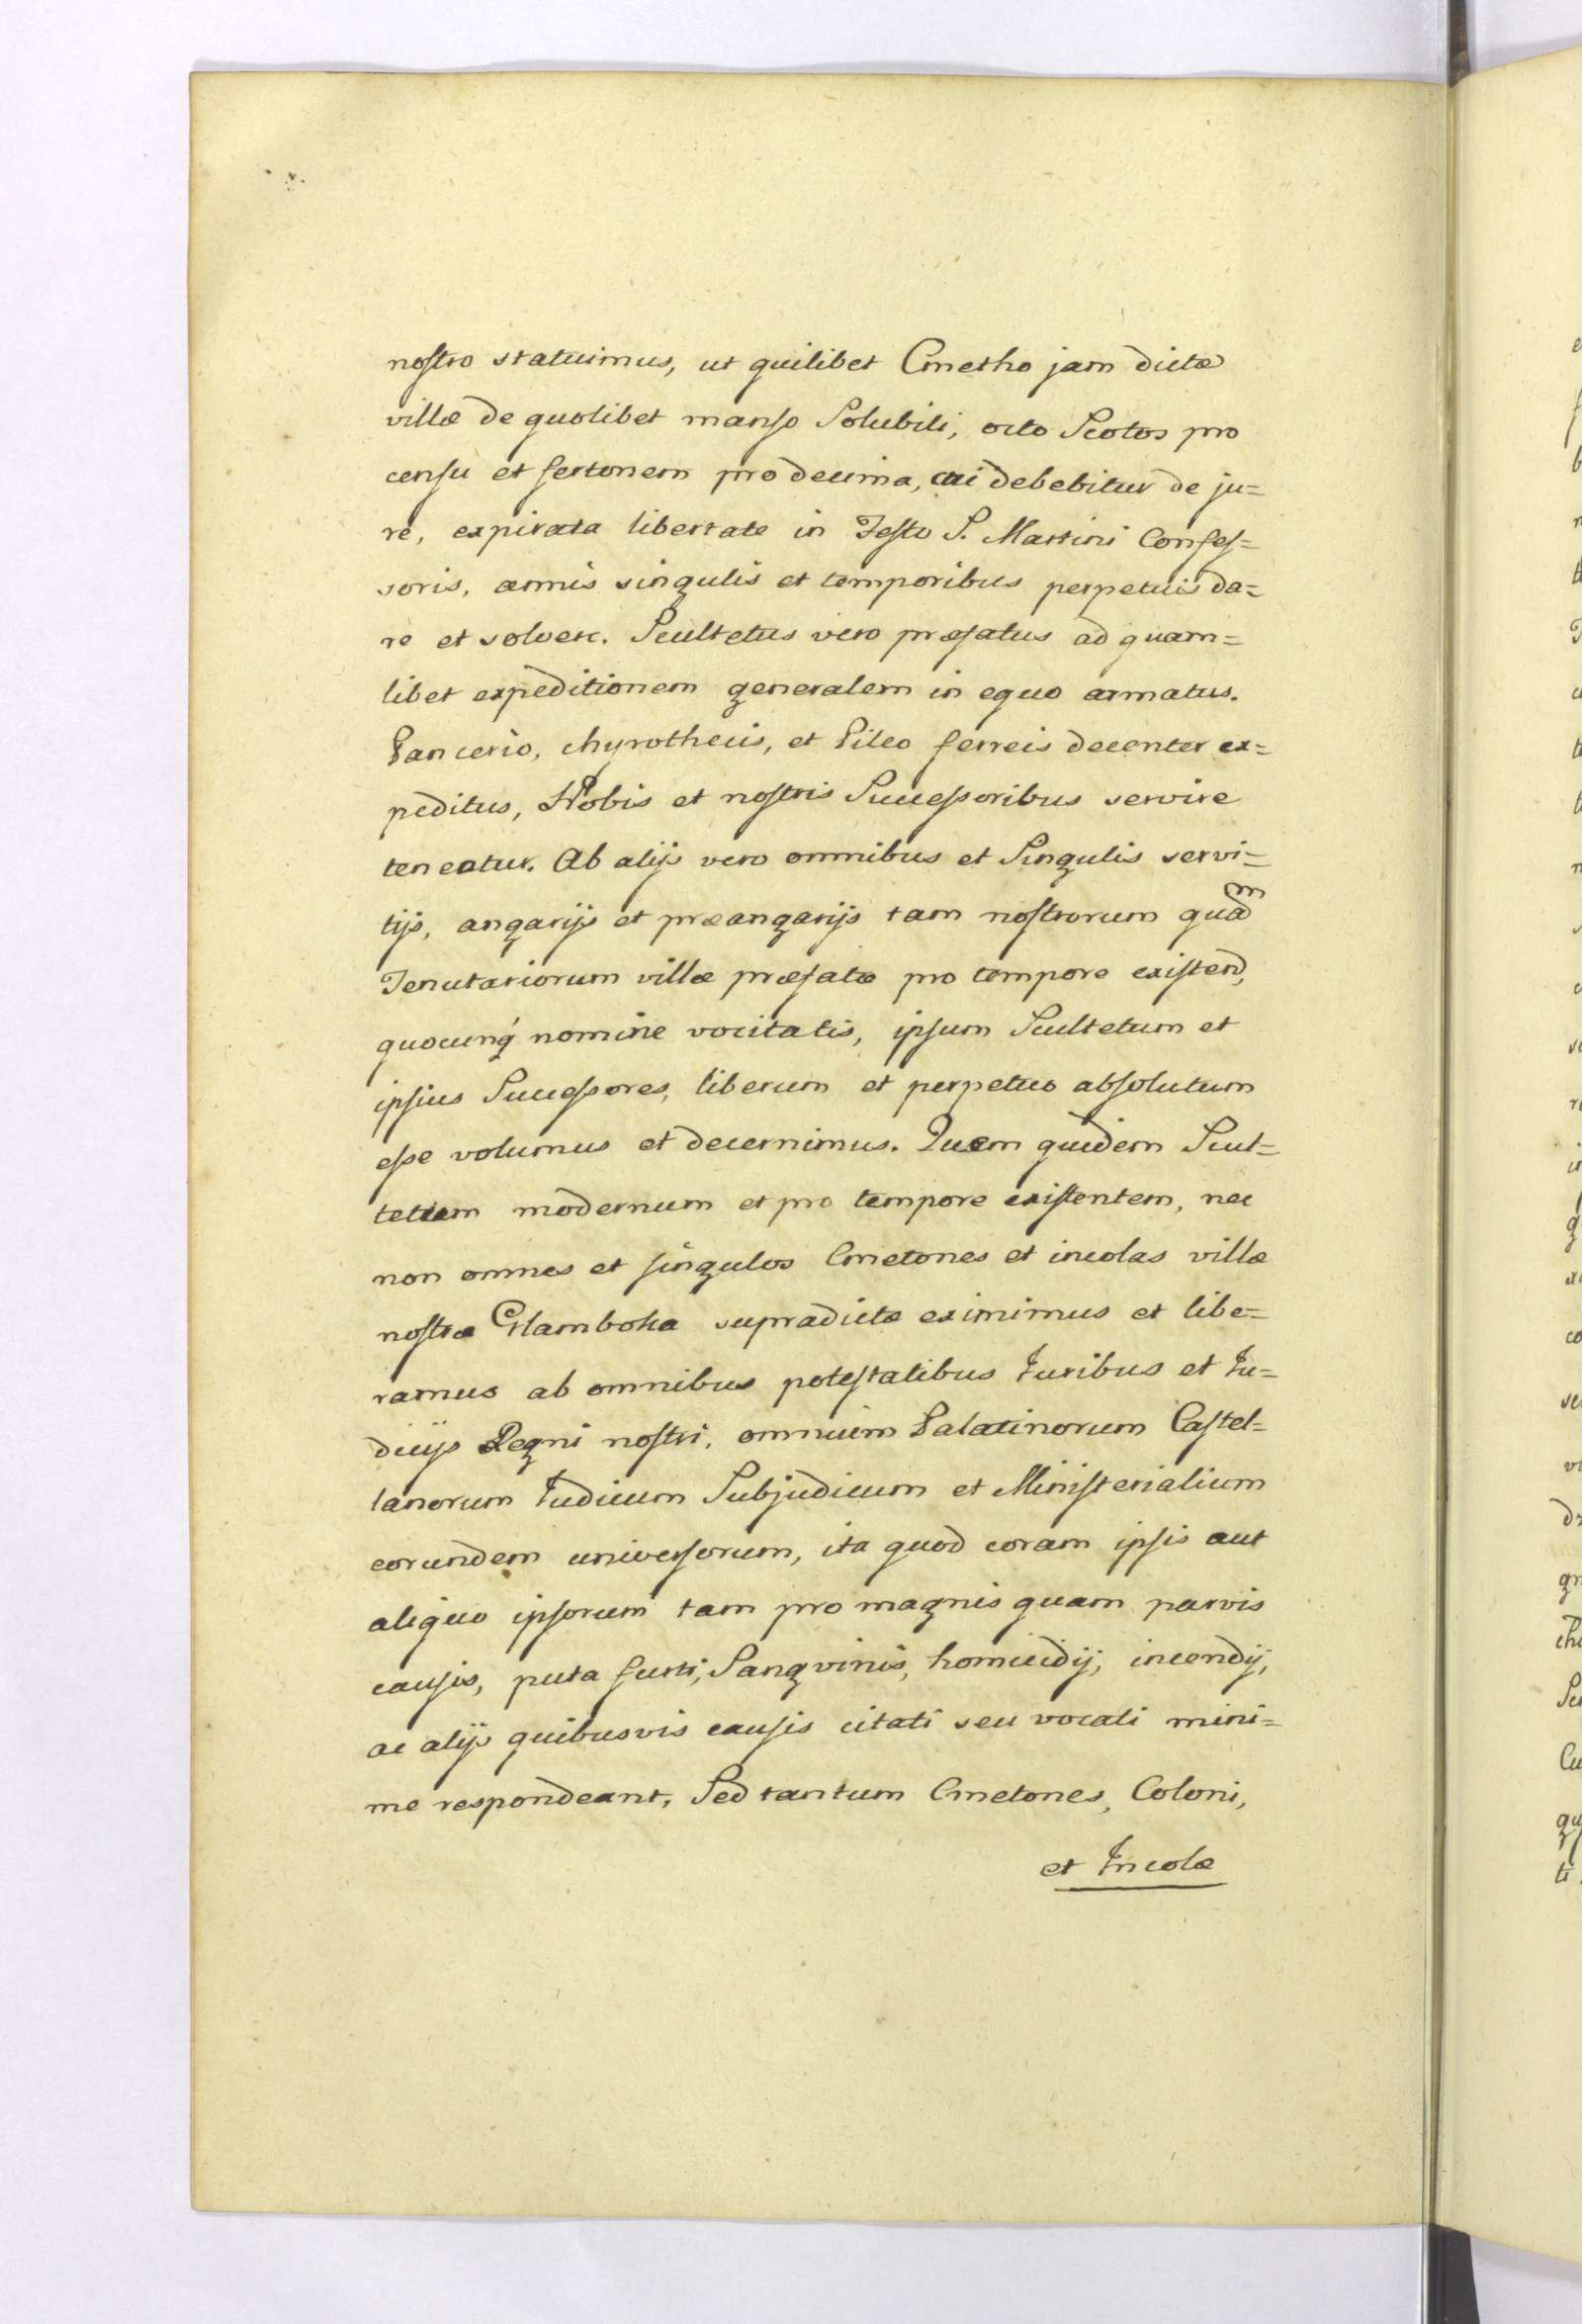 nostro statuimus, ut quilibet Cmetho jam dictæ
villæ de quolibet manso Solubili, octo Scotos pro
censu et fertonem pro decima, cui debebitur de ju=
re, expirata libertate in Festo S. Martini Confes=
soris, annis singulis et temporibus perpetuis da=
re et solvere. Scultetus vero præfatus ad quam=
libet expeditionem generalem in equo armatus.
Pancerio, chyrothecis, et Pileo ferreis decenter ex=
peditus, Nobis et nostris Successoribus servire
teneatur. Ab alijs vero omnibus et Singulis servi=
tijs, angarijs et præangarijs tam nostrorum quam
Tenutariorum villæ præfatæ pro tempore existend,
quocunq́ nomine vocitatis, ipsum Scultetum et
ipsius Successores, liberum et perpetuo absolutum
esse volumus et decernimus. Quem quidem Scul=
tetum modernum et pro tempore existentem, nec
non omnes et singulos Cmetones et incolas villæ
nostræ Glamboka supradictæ eximimus et libe=
ramus ab omnibus potestatibus Iuribus et Iu=
dicijs Regni nostri, omnium Palatinorum Castel=
lanorum Iudicum Subjudicum et Ministerialium
eorundem universorum, ita quod coram ipsis aut
aliquo ipsorum tam pro magnis quam parvis
causis, puta furti, Sangvinis, homicidij, incendij,
ac alijs quibusvis causis citati seu vocati mini=
me respondeant, Sed tantum Cmetones, Coloni,
et Incolæ